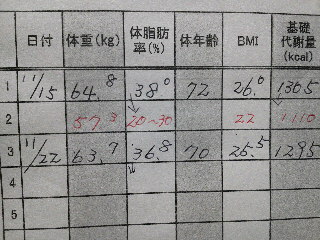 日付 体重(kg) 体脂肪率(%) 体年齢 BMI 基礎代謝量(kcal)
1 11/15 64.8 38.0 72 26.0 1305
2 57.3 20~30 22 1110
3 11/22 63.7 36.8 70 25.5 1295
4
5